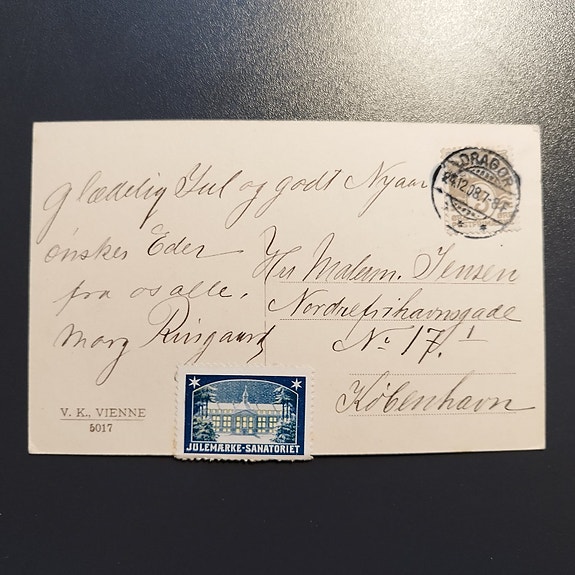 Glædelig Jul og godt Nyaar
ønsker Eder
fra os alle.
Marg Ringaard
Hr Malerm. Jensen
Nordrefrihavnsgade
No 17. 1
København
DRAGØR
24.12.08.7-8
V. K., VIENNE
5017
JULEMÆRKE-SANATORIET